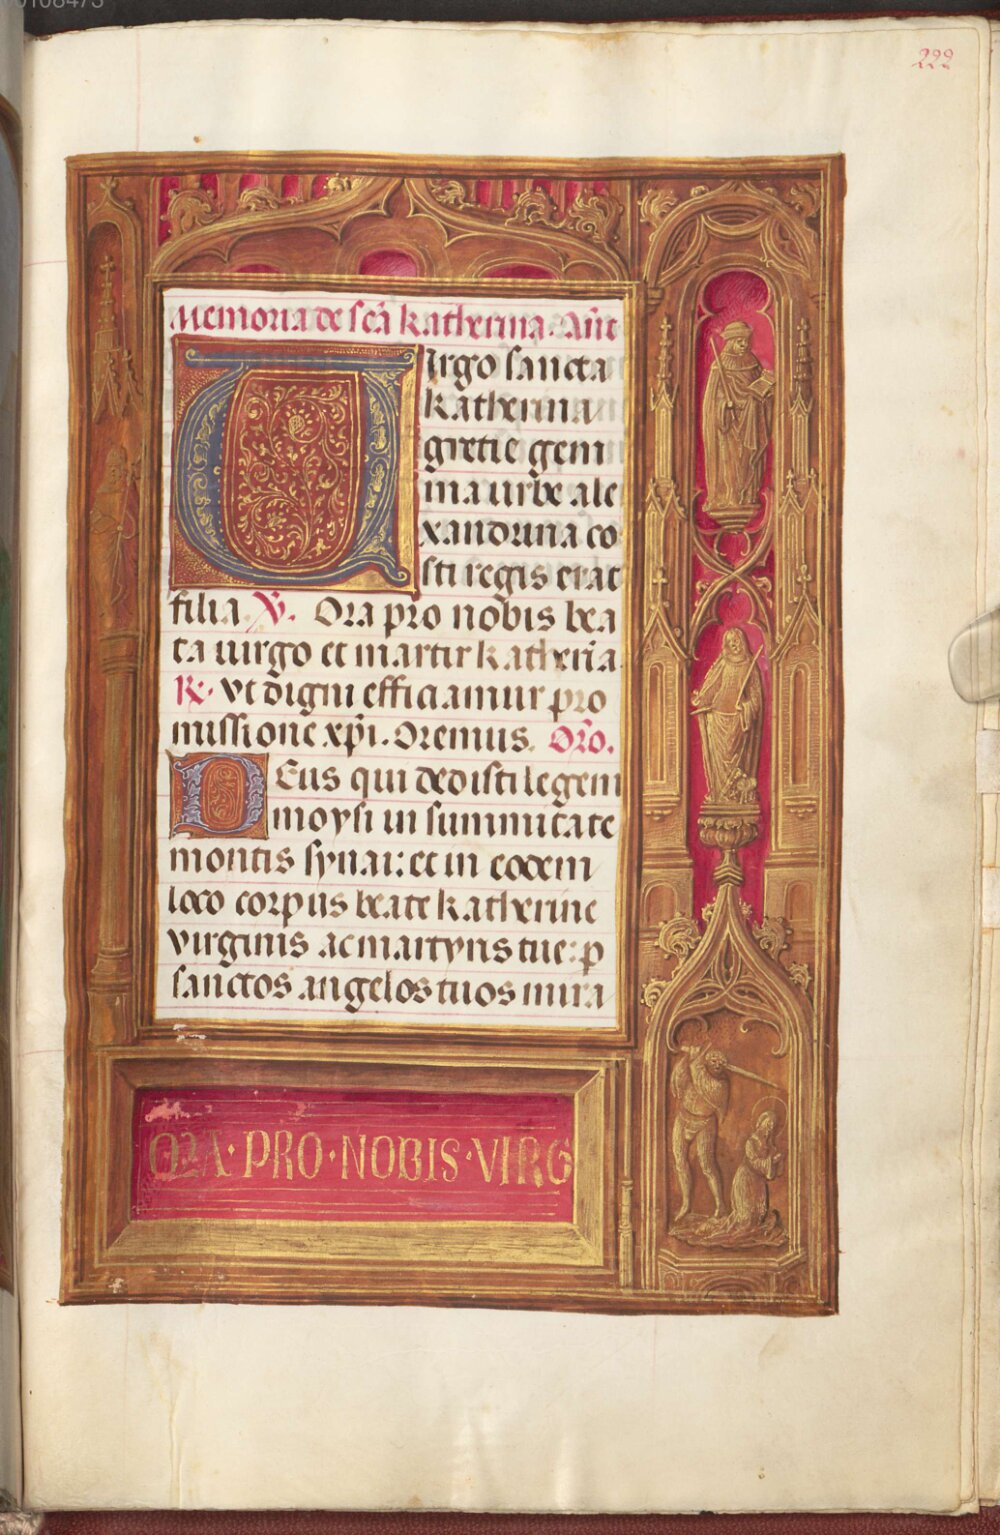 00108473
222
Memoria de scā Katherina. Añt
Virgo sancta
Katherina
gretie gem
ma urbe ale
xandrina co
sti regis erat
filia. V. Ora pro nobis bea
ta uirgo et martir Katheria
R. vt digni efficiamur pro
missione xpi. Oremus. Orō.
DEus qui dedisti legem
moysi in summitate
montis synai: et in eodem
loco corpus beate Katherine
virginis ac martyris tue: p
sanctos angelos tuos mira
ORA·PRO·NOBIS·VIRG